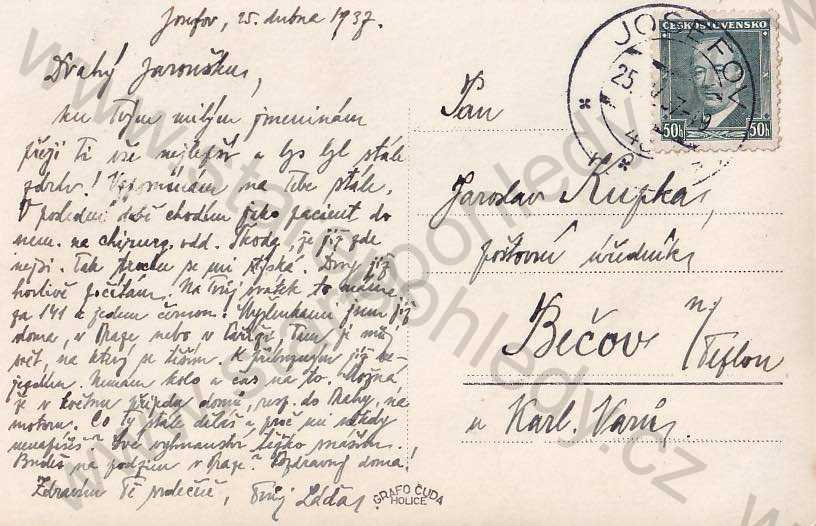 Josefov, 25. dubna 1937.
Drahý Jaroušku,
ku Tvým milým jmeninám
přeji Ti vše nejlepší a bys byl stále
zdráv! Vzpomínám na Tebe stále.
V poslední době chodím jako pacient do
nem. na chirurg. odd. Škoda, že již zde
nejsi. Tak trochu se mi stýská. Dny již
horlivě počítám. Na Tvůj svátek to máme
za 141 a jeden černou! Myšlenkami jsem již
doma, v Praze nebo v Tam je můj
svět, na který se těším. K příbuzným již ne-
jezdím. Nemám kolo a čas na to. Možná
že v květnu přijedu domů, resp. do Prahy, na
motoru. Co Ty stále děláš a proč mi nikdy
nenapíšeš? Své vyhnanství těžko snáším.
Budeš na podzim v Praze? Pozdravuj doma!
Zdravím Tě srdečně, Tvůj Láďa.
Pan
Jaroslav Kupka,
poštovní úředník,
Bečov n/
Teplou
u Karl. Varů.
ČESKOSLOVENSKO
50h 50h
JOSEFOV
25. IV. 37
GRAFO ČUDA
HOLICE
www.stare-pohledy.cz